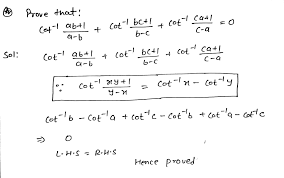 Q) Prove that:
cot⁻¹ (ab+1)/(a-b) + cot⁻¹ (bc+1)/(b-c) + cot⁻¹ (ca+1)/(c-a) = 0
Sol: cot⁻¹ (ab+1)/(a-b) + cot⁻¹ (bc+1)/(b-c) + cot⁻¹ (ca+1)/(c-a)
∵ cot⁻¹ (xy+1)/(y-x) = cot⁻¹x - cot⁻¹y
cot⁻¹b - cot⁻¹a + cot⁻¹c - cot⁻¹b + cot⁻¹a - cot⁻¹c
⇒ 0
L.H.S = R.H.S
Hence proved